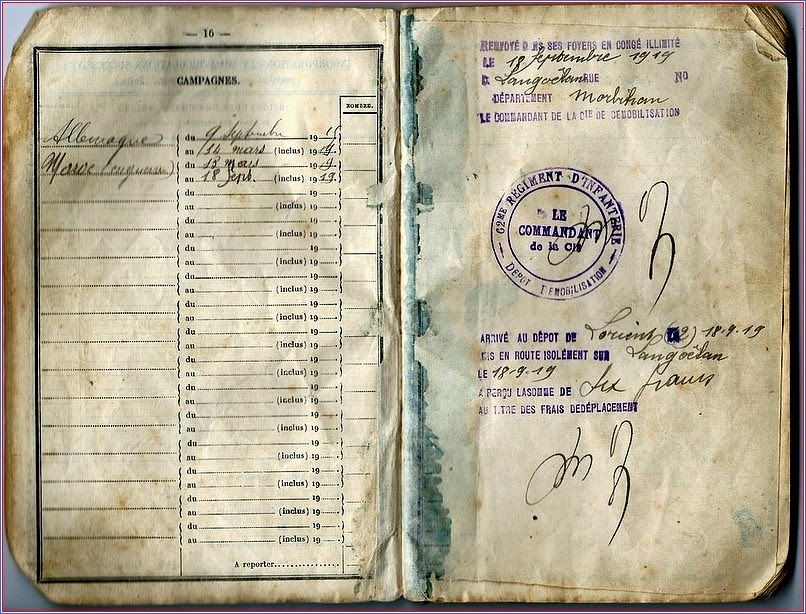 — 16 —
CAMPAGNES.
NOMBRE.
Allemagne du 9 Septembre 19 15
au 14 mars (inclus) 19 19
Maroc du 13 mars 19 19
au 18 Sept. (inclus) 19 19
du 19
au (inclus) 19
du 19
au (inclus) 19
du 19
au (inclus) 19
du 19
au (inclus) 19
du 19
au (inclus) 19
du 19
au (inclus) 19
du 19
au (inclus) 19
du 19
au (inclus) 19
du 19
au (inclus) 19
du 19
au (inclus) 19
du 19
au (inclus) 19
du 19
au (inclus) 19
du 19
au (inclus) 19
A reporter
RENVOYÉ DANS SES FOYERS EN CONGÉ ILLIMITÉ
LE 18 Septembre 1919
A Langoëlan RUE No
DÉPARTEMENT Morbihan
LE COMMANDANT DE LA CIE DE DÉMOBILISATION
62ME RÉGIMENT D'INFANTERIE
LE
COMMANDANT
de la Cie
DÉPOT DÉMOBILISATION
ARRIVÉ AU DÉPOT DE Lorient 18-9-19
MIS EN ROUTE ISOLÉMENT SUR Langoëlan
LE 18-9-19
A PERÇU LASOMME DE Six francs
AU TITRE DES FRAIS DEDÉPLACEMENT